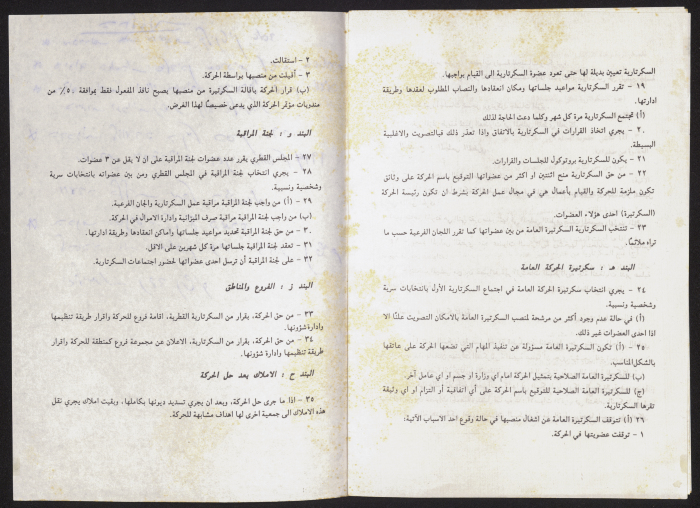 السكرتارية تعيين بديلة لها حتى تعود عضوة السكرتارية الى القيام بواجبها.
١٩ - تقرر السكرتارية مواعيد جلساتها ومكان انعقادها والنصاب المطلوب لعقدها وطريقة
ادارتها.
(أ) تجتمع السكرتارية مرة كل شهر وكلما دعت الحاجة لذلك
٢٠ - يجري اتخاذ القرارات في السكرتارية بالاتفاق واذا تعذر ذلك فبالتصويت والاغلبية
البسيطة.
٢١ - يكون للسكرتارية بروتوكول للجلسات والقرارات.
٢٢ - من حق السكرتارية منح اثنتين او اكثر من عضواتها التوقيع باسم الحركة على وثائق
تكون ملزمة للحركة والقيام بأعمال هي في مجال عمل الحركة بشرط ان تكون رئيسة الحركة
(السكرتيرة) احدى هؤلاء العضوات.
٢٣ - تنتخب السكرتارية السكرتيرة العامة من بين عضواتها كما تقرر اللجان الفرعية حسب ما
تراه ملائمًا.
البند هـ : سكرتيرة الحركة العامة
٢٤ - يجري انتخاب سكرتيرة الحركة العامة في اجتماع السكرتارية الأول بانتخابات سرية
وشخصية ونسبية.
(أ) في حالة عدم وجود أكثر من مرشحة لمنصب السكرتيرة العامة بالامكان التصويت علنًا الا
اذا احدى العضوات غير ذلك.
٢٥ - (أ) تكون السكرتيرة العامة مسؤولة عن تنفيذ المهام التي تضعها الحركة على عاتقها
بالشكل المناسب.
(ب) للسكرتيرة العامة الصلاحية بتمثيل الحركة امام اي وزارة او جسم او اي عامل آخر.
(ج) للسكرتيرة العامة الصلاحية للتوقيع باسم الحركة على أي اتفاقية أو التزام او اي وثيقة
تقرها السكرتارية.
٢٦ (أ) تتوقف السكرتيرة العامة عن اشغال منصبها في حالة وقوع احد الاسباب الآتية:
١ - توقفت عضويتها في الحركة.
٢ - استقالت.
٣ - أقيلت من منصبها بواسطة الحركة.
(ب) قرار الحركة باقالة السكرتيرة من منصبها يصبح نافذ المفعول فقط بموافقة ٥٠٪ من
مندوبات مؤتمر الحركة الذي يدعى خصيصًا لهذا الغرض.
البند و : لجنة المراقبة
٢٧ - المجلس القطري يقرر عدد عضوات لجنة المراقبة على ان لا يقل عن ٣ عضوات.
٢٨ - يجري انتخاب لجنة المراقبة في المجلس القطري ومن بين عضواته بانتخابات سرية
وشخصية ونسبية.
٢٩ - (أ) من واجب لجنة المراقبة مراقبة عمل السكرتارية والجان الفرعية.
(ب) من واجب لجنة المراقبة مراقبة صرف الميزانية وادارة الاموال في الحركة.
٣٠ - من حق لجنة المراقبة تحديد مواعيد جلساتها وأماكن انعقادها وطريقة ادارتها.
٣١ - تعقد لجنة المراقبة جلساتها مرة كل شهرين على الاقل.
٣٢ - على لجنة المراقبة أن ترسل احدى عضواتها لحضور اجتماعات السكرتارية.
البند ز : الفروع والمناطق
٣٣ - من حق الحركة، بقرار من السكرتارية القطرية، اقامة فروع للحركة واقرار طريقة تنظيمها
وادارة شؤونها.
٣٤ - من حق الحركة، بقرار من السكرتارية، الاعلان عن مجموعة فروع كمنطقة للحركة واقرار
طريقة تنظيمها وادارة شؤونها.
البند ح : الاملاك بعد حل الحركة
٣٥ - اذا ما جرى حل الحركة، وبعد ان يجري تسديد ديونها بكاملها، وبقيت املاك يجري نقل
هذه الاملاك الى جمعية اخرى لها اهداف مشابهة للحركة.